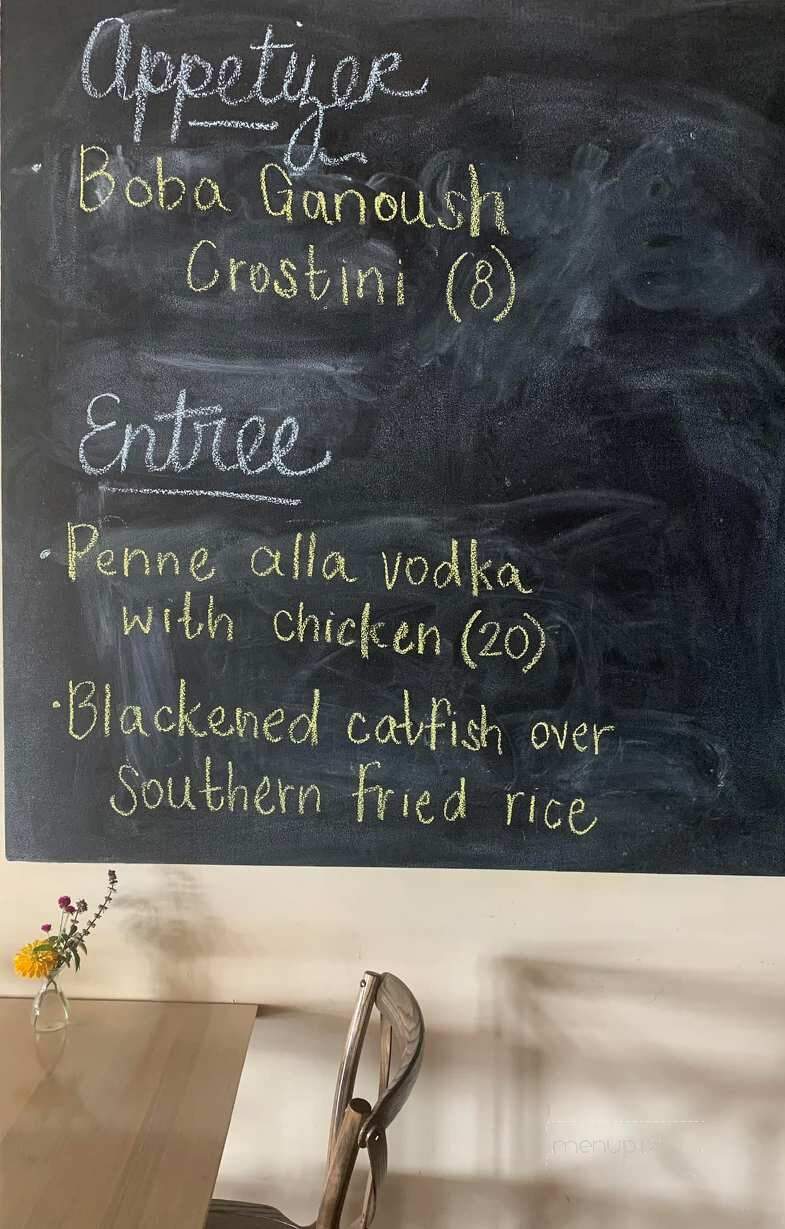 Appetizer
Boba Ganoush
Crostini (8)
Entree
• Penne alla vodka
with chicken (20)
• Blackened catfish over
Southern fried rice